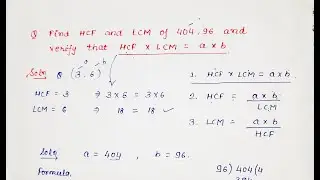 Q Find HCF and LCM of 404, 96 and
verify that HCF x LCM = a x b
a b
Soln Q (3, 6)
HCF = 3 ⇒ 3 x 6 = 3 x 6
LCM = 6 ⇒ 18 = 18 ✓
1. HCF x LCM = a x b
2. HCF = a x b / LCM
3. LCM = a x b / HCF
Soln a = 404 , b = 96
Formula
96) 404 (4